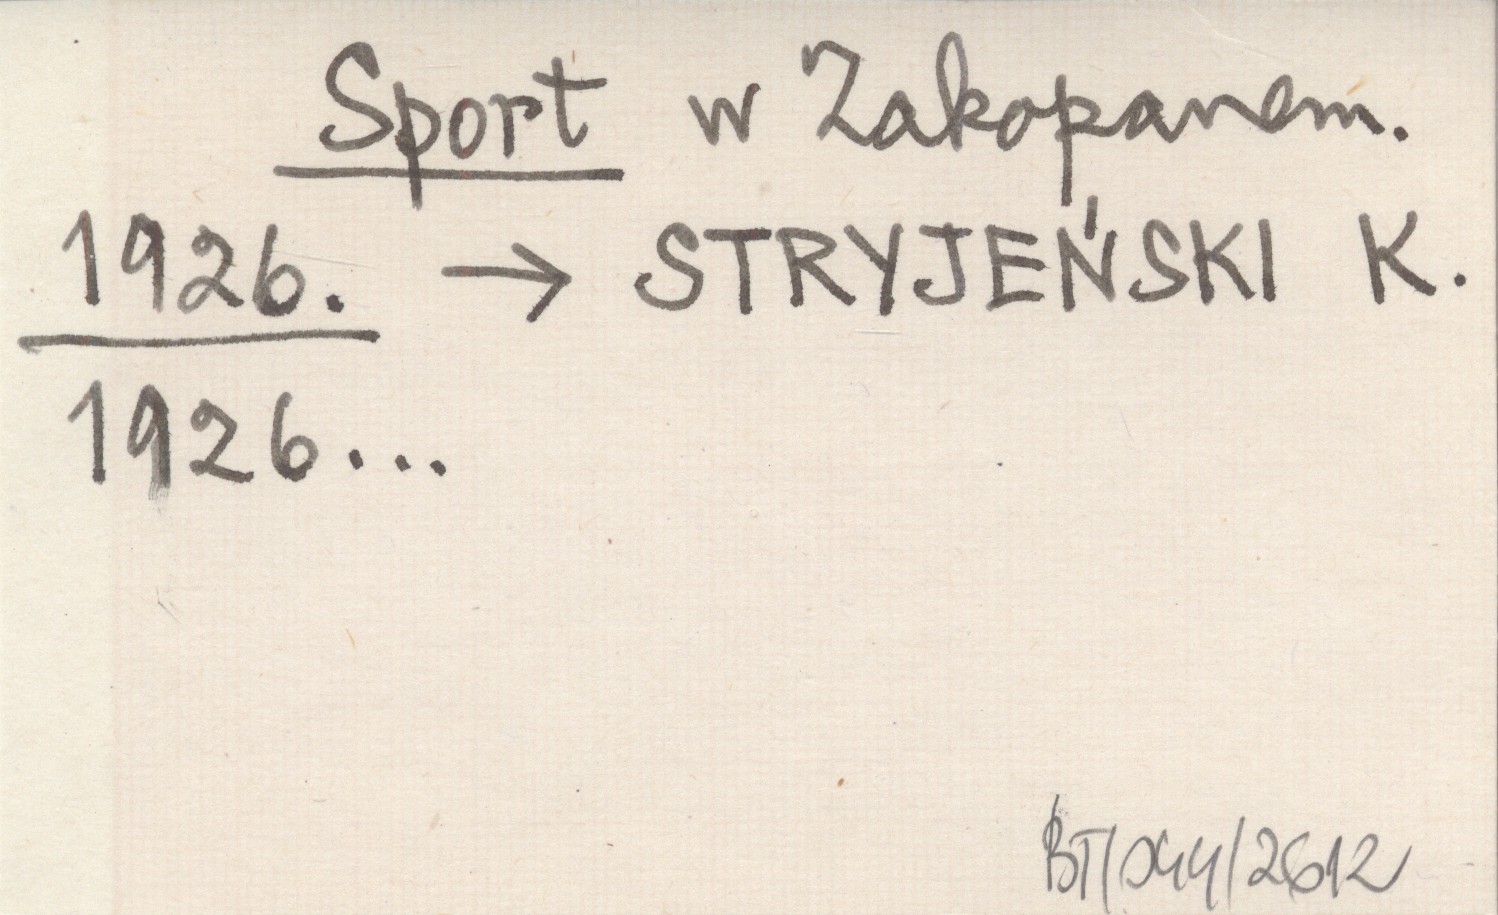 Sport w Zakopanem.
1926. → STRYJEŃSKI K.
1926...
BT/044/2612